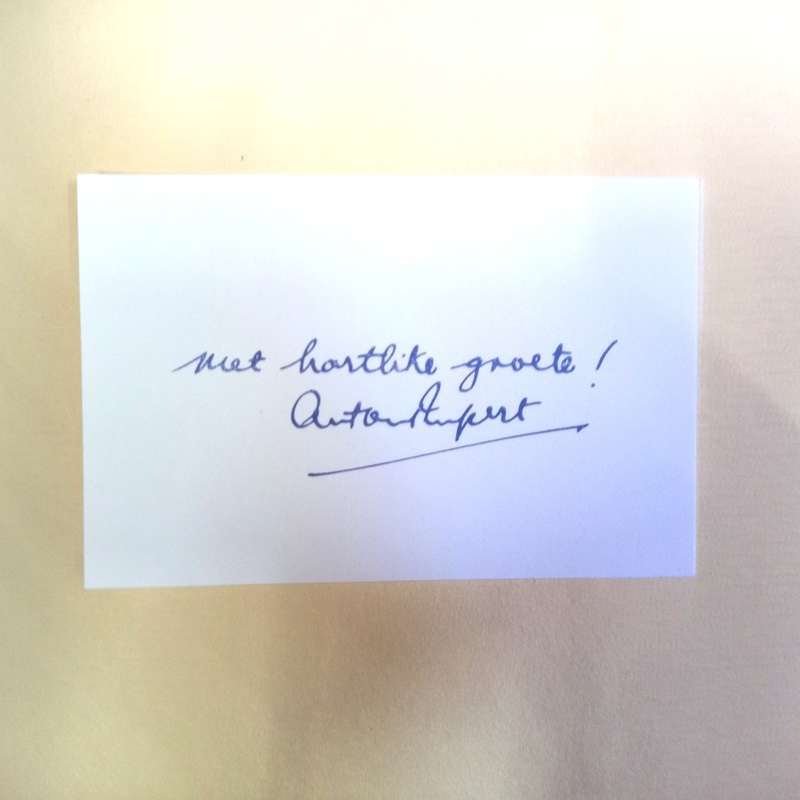 met hartlike groete!
Anton Rupert